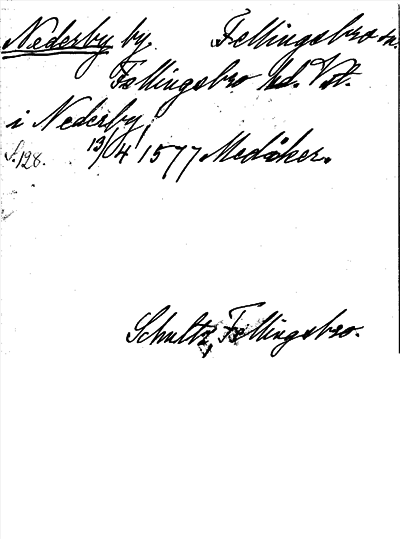 Nederby by. Fellingsbro sn.
Fellingsbro hd. Vstm.
i Nederby
s. 128. 13/4 1577 Medåker.
Schultz, Fellingsbro.